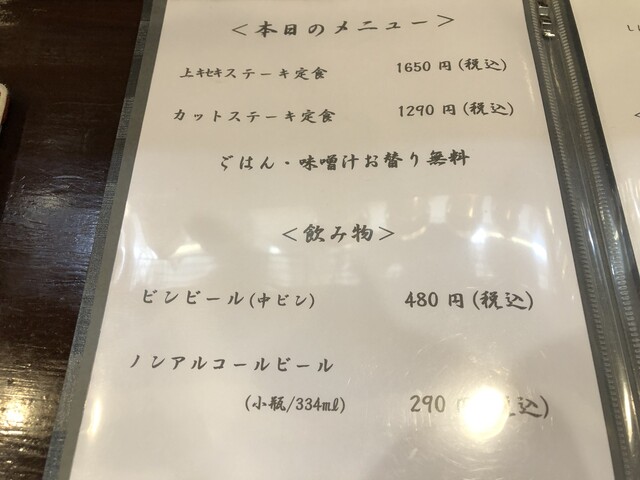 ＜本日のメニュー＞
上ｷｾｷステーキ定食 1650円(税込)
カットステーキ定食 1290円(税込)
ごはん・味噌汁お替り無料
＜飲み物＞
ビンビール(中ビン) 480円(税込)
ノンアルコールビール
(小瓶/334㎖) 290円(税込)